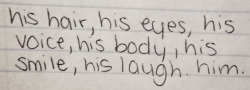 his hair, his eyes, his
voice, his body, his
smile, his laugh. him.